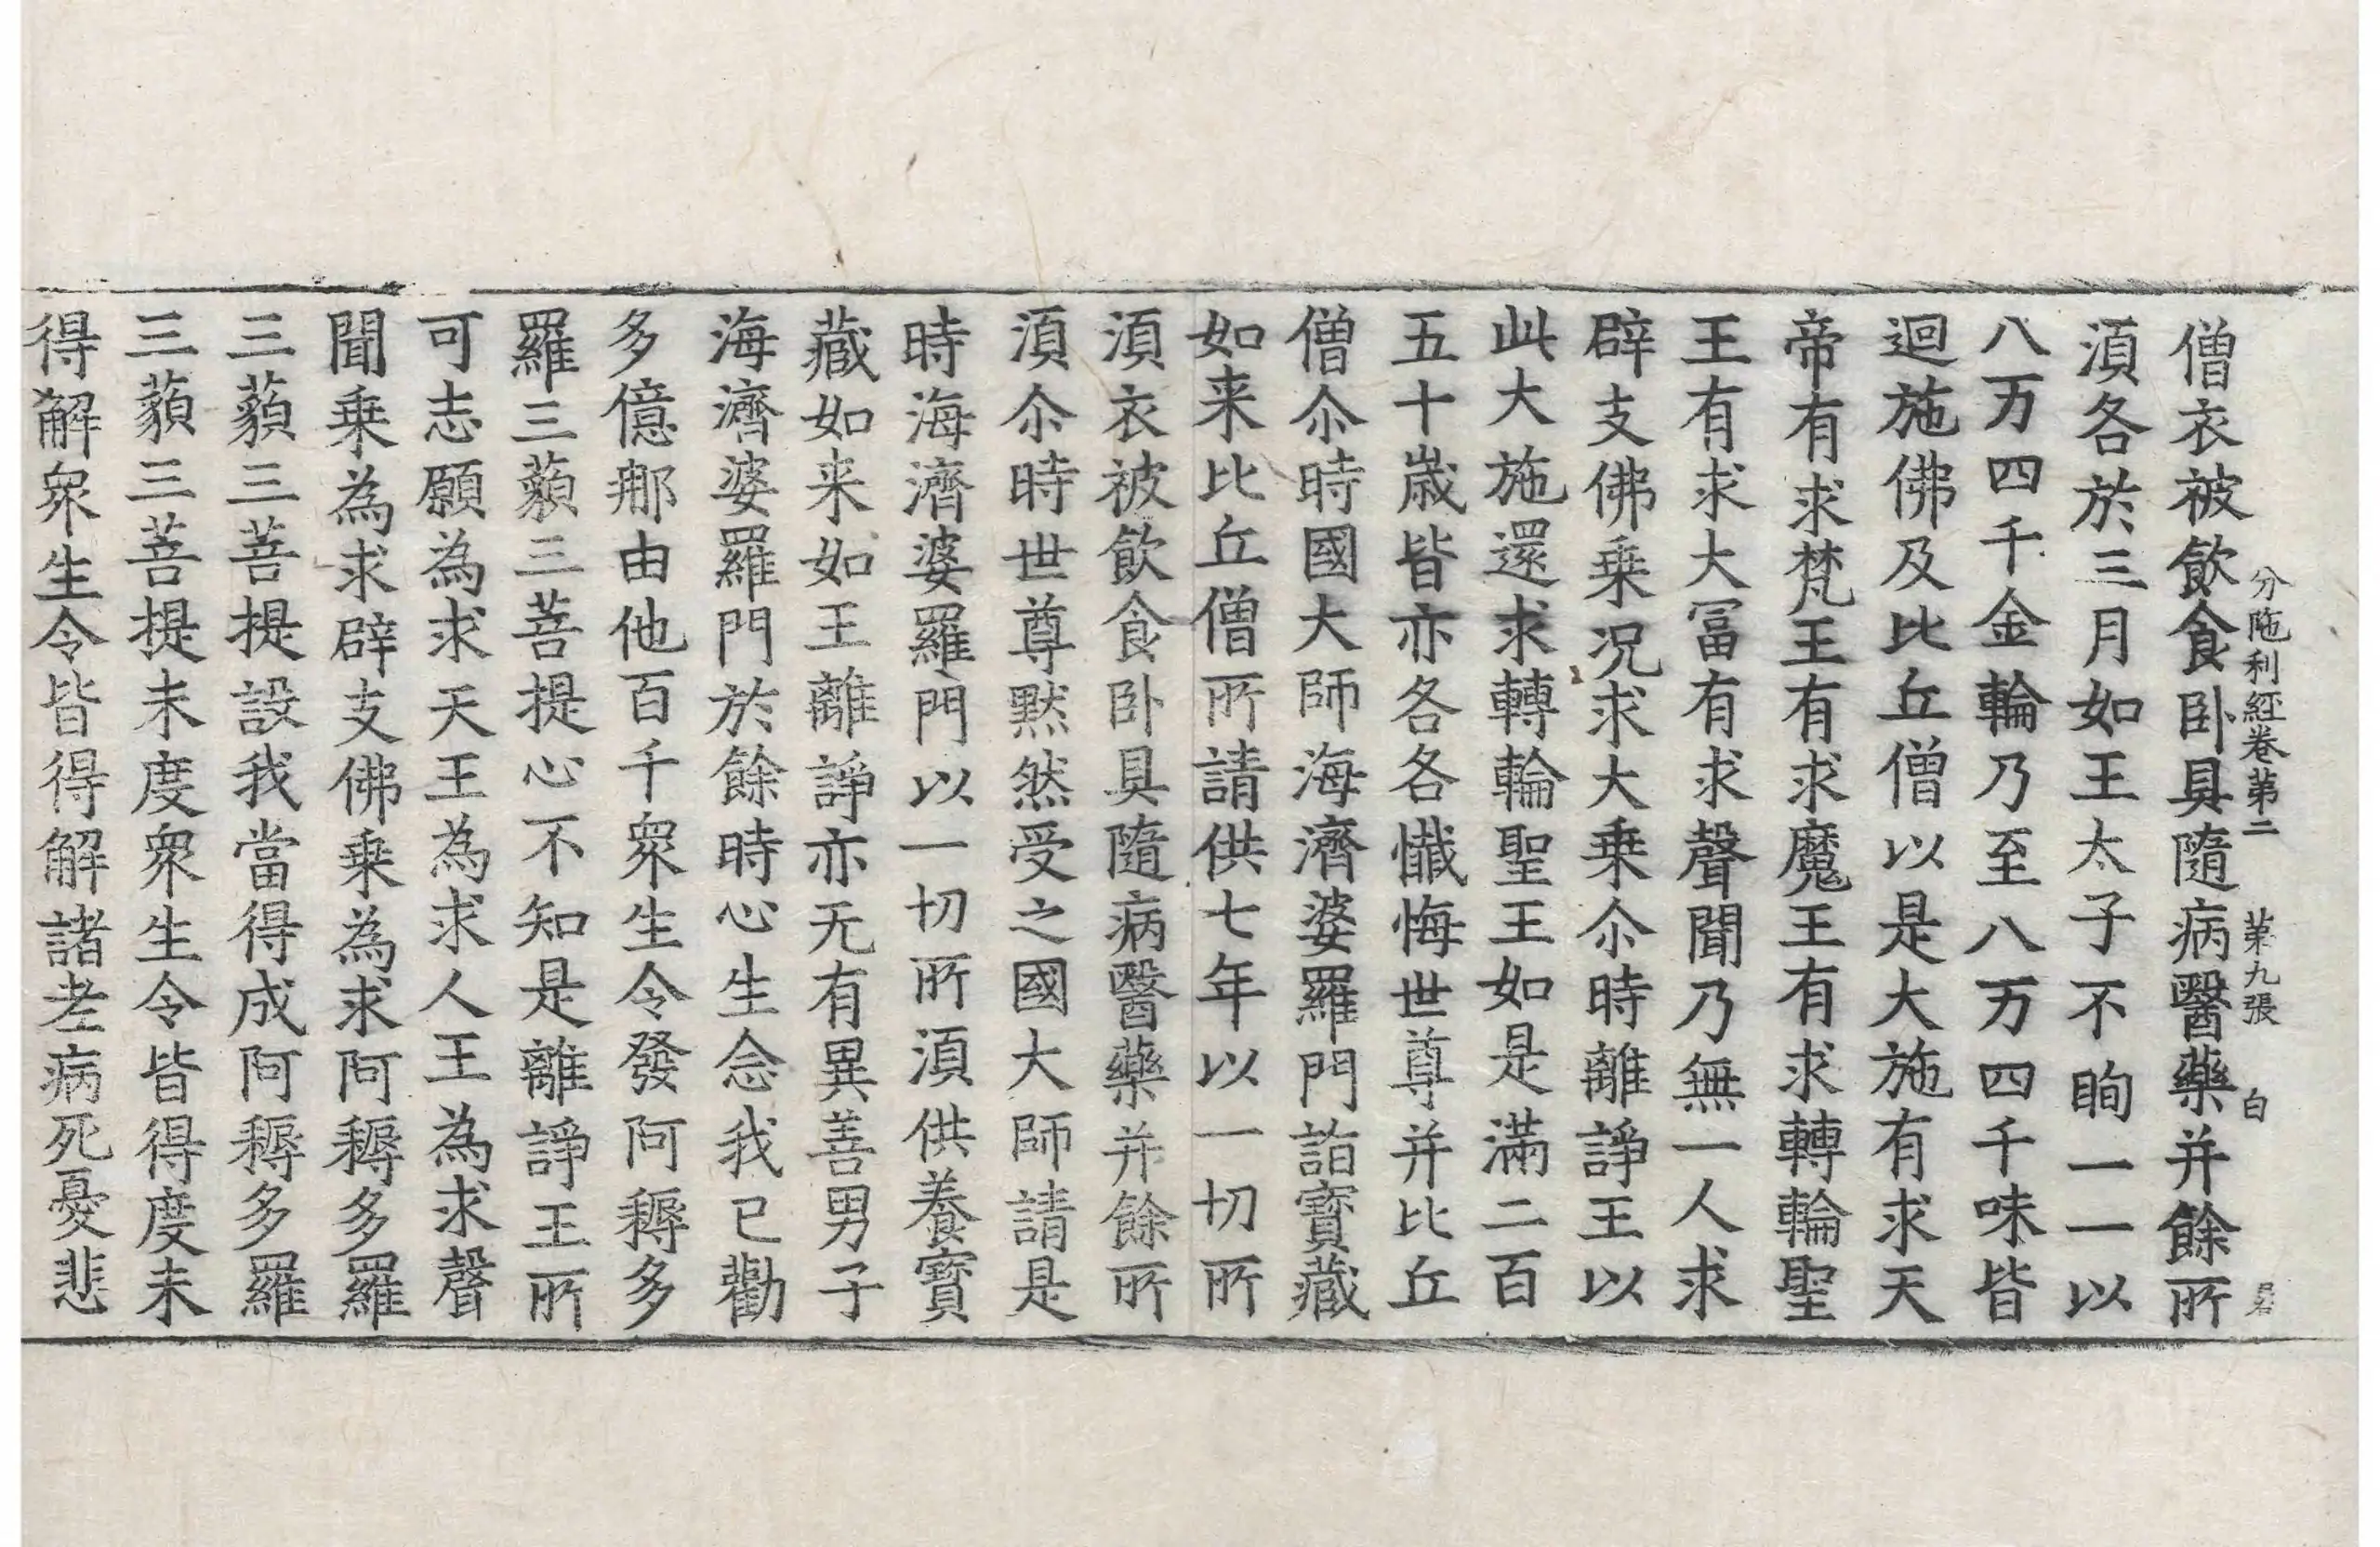 分陁利経卷第二 第九張 白
僧衣被飲食卧具隨病醫藥并餘所
湏各於三月如王太子不眴一一以
八万四千金輪乃至八万四千味皆
迴施佛及比丘僧以是大施有求天
帝有求梵王有求魔王有求轉輪聖
王有求大冨有求聲聞乃無一人求
辟支佛乗况求大乗尒時離諍王以
此大施還求轉輪聖王如是滿二百
五十歲皆亦各各懺悔世尊并比丘
僧尒時國大師海濟婆羅門詣寳藏
如来比丘僧所請供七年以一切所
湏衣被飲食卧具隨病醫藥并餘所
湏尒時世尊默然受之國大師請是
時海濟婆羅門以一切所湏供養寳
藏如来如王離諍亦无有異善男子
海濟婆羅門於餘時心生念我已勸
多億𨚗由他百千衆生令發阿耨多
羅三藐三菩提心不知是離諍王所
可志願為求天王為求人王為求聲
聞乗為求辟支佛乗為求阿耨多羅
三藐三菩提設我當得成阿耨多羅
三藐三菩提未度衆生令皆得度未
得解衆生令皆得解諸老病死憂悲